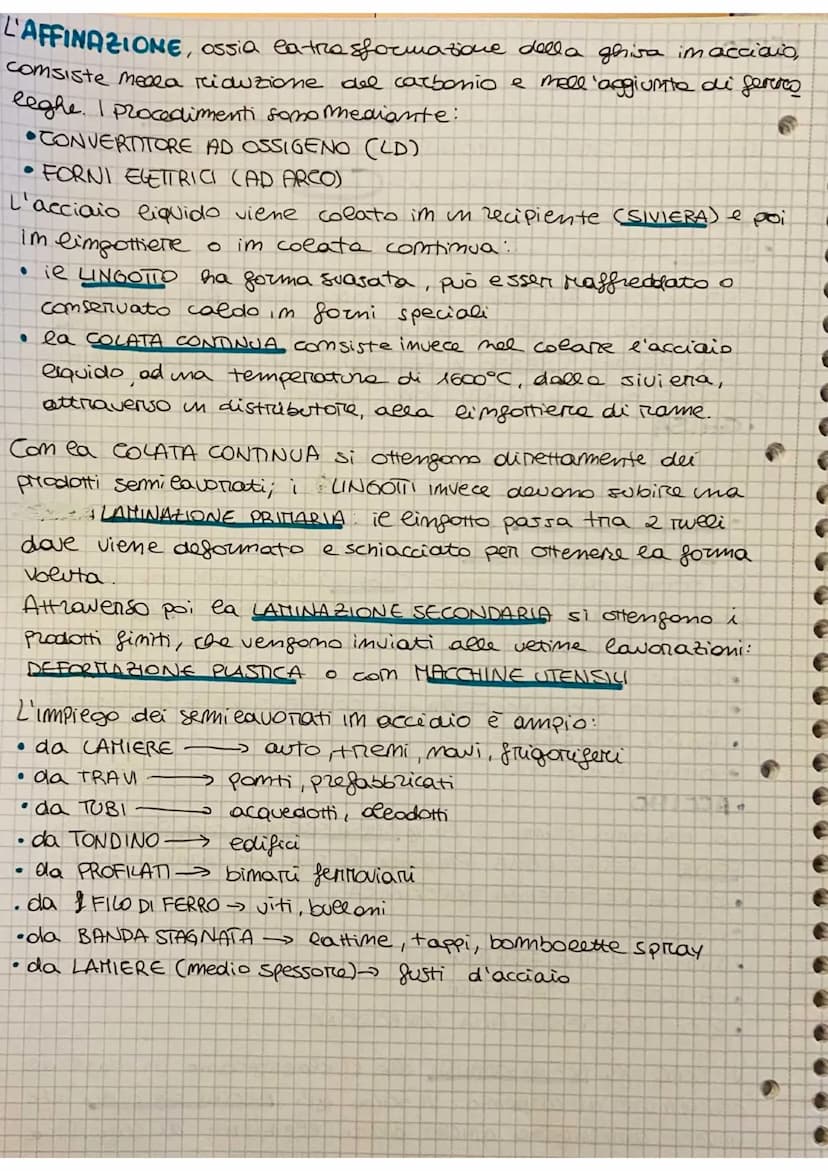 L'AFFINAZIONE, ossia la trasformazione della ghisa in acciaio,
consiste nella riduzione del carbonio e nell'aggiunta di ferro
leghe. I procedimenti sono mediante:
• CONVERTITORE AD OSSIGENO (LD)
• FORNI ELETTRICI (AD ARCO)
L'acciaio liquido viene colato in un recipiente (SIVIERA) e poi
in lingottiere o in colata continua:
• il LINGOTTO ha forma svasata, può esser raffreddato o
conservato caldo in forni speciali
• la COLATA CONTINUA consiste invece nel colare l'acciaio
liquido, ad una temperatura di 1600°C, dalla siviera,
attraverso un distributore, alla lingottiera di rame.
Con la COLATA CONTINUA si ottengono direttamente dei
prodotti semilavorati; i LINGOTTI invece devono subire una
LAMINAZIONE PRIMARIA: il lingotto passa tra 2 rulli
dove viene deformato e schiacciato per ottenere la forma
voluta.
Attraverso poi la LAMINAZIONE SECONDARIA si ottengono i
prodotti finiti, che vengono inviati alle ultime lavorazioni:
DEFORMAZIONE PLASTICA o con MACCHINE UTENSILI
L'impiego dei semilavorati in acciaio è ampio:
• da LAMIERE → auto, treni, navi, frigoriferi
• da TRAVI → ponti, prefabbricati
• da TUBI → acquedotti, oleodotti
• da TONDINO → edifici
• da PROFILATI → binari ferroviari
• da FILO DI FERRO → viti, bulloni
• da BANDA STAGNATA → lattine, tappi, bombolette spray
• da LAMIERE (medio spessore) → fusti d'acciaio